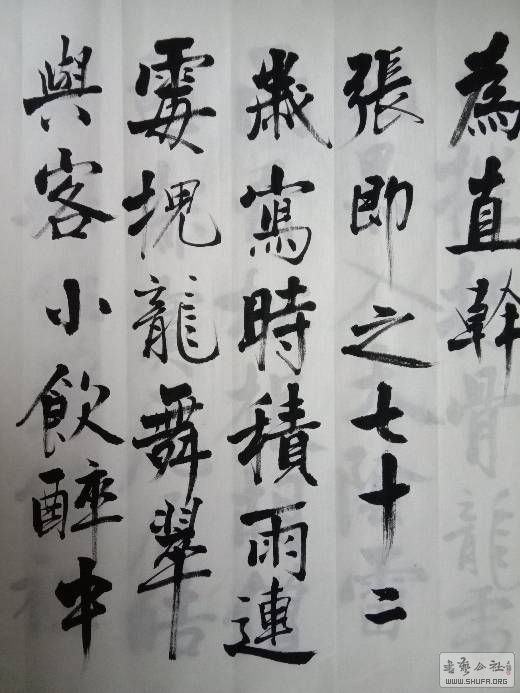 為直幹
張即之七十二
歲寫時積雨連
霉槐龍舞翠
與客小飲醉中
書藝公社
WWW.SHUFA.ORG